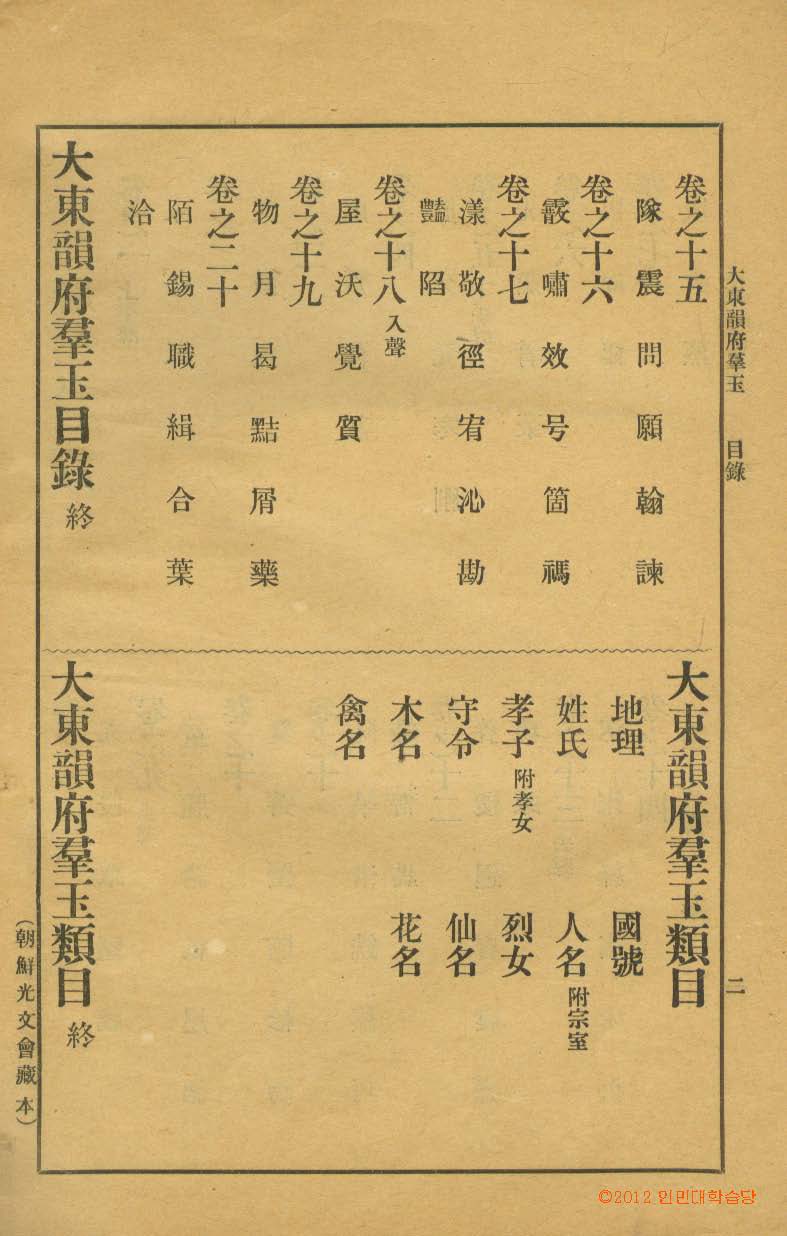 大東韻府羣玉 目錄 二
卷之十五
隊震問願翰諫
卷之十六
霰嘯效号箇禡
卷之十七
漾敬徑宥沁勘
豔陷
卷之十八 入聲
屋沃覺質
卷之十九
物月曷黠屑藥
卷之二十
陌錫職緝合葉
洽
大東韻府羣玉目錄 終
大東韻府羣玉類目
地理 國號
姓氏 人名 附宗室
孝子 附孝女 烈女
守令 仙名
木名 花名
禽名
大東韻府羣玉類目 終
(朝鮮光文會藏本)
©2012 인민대학습당